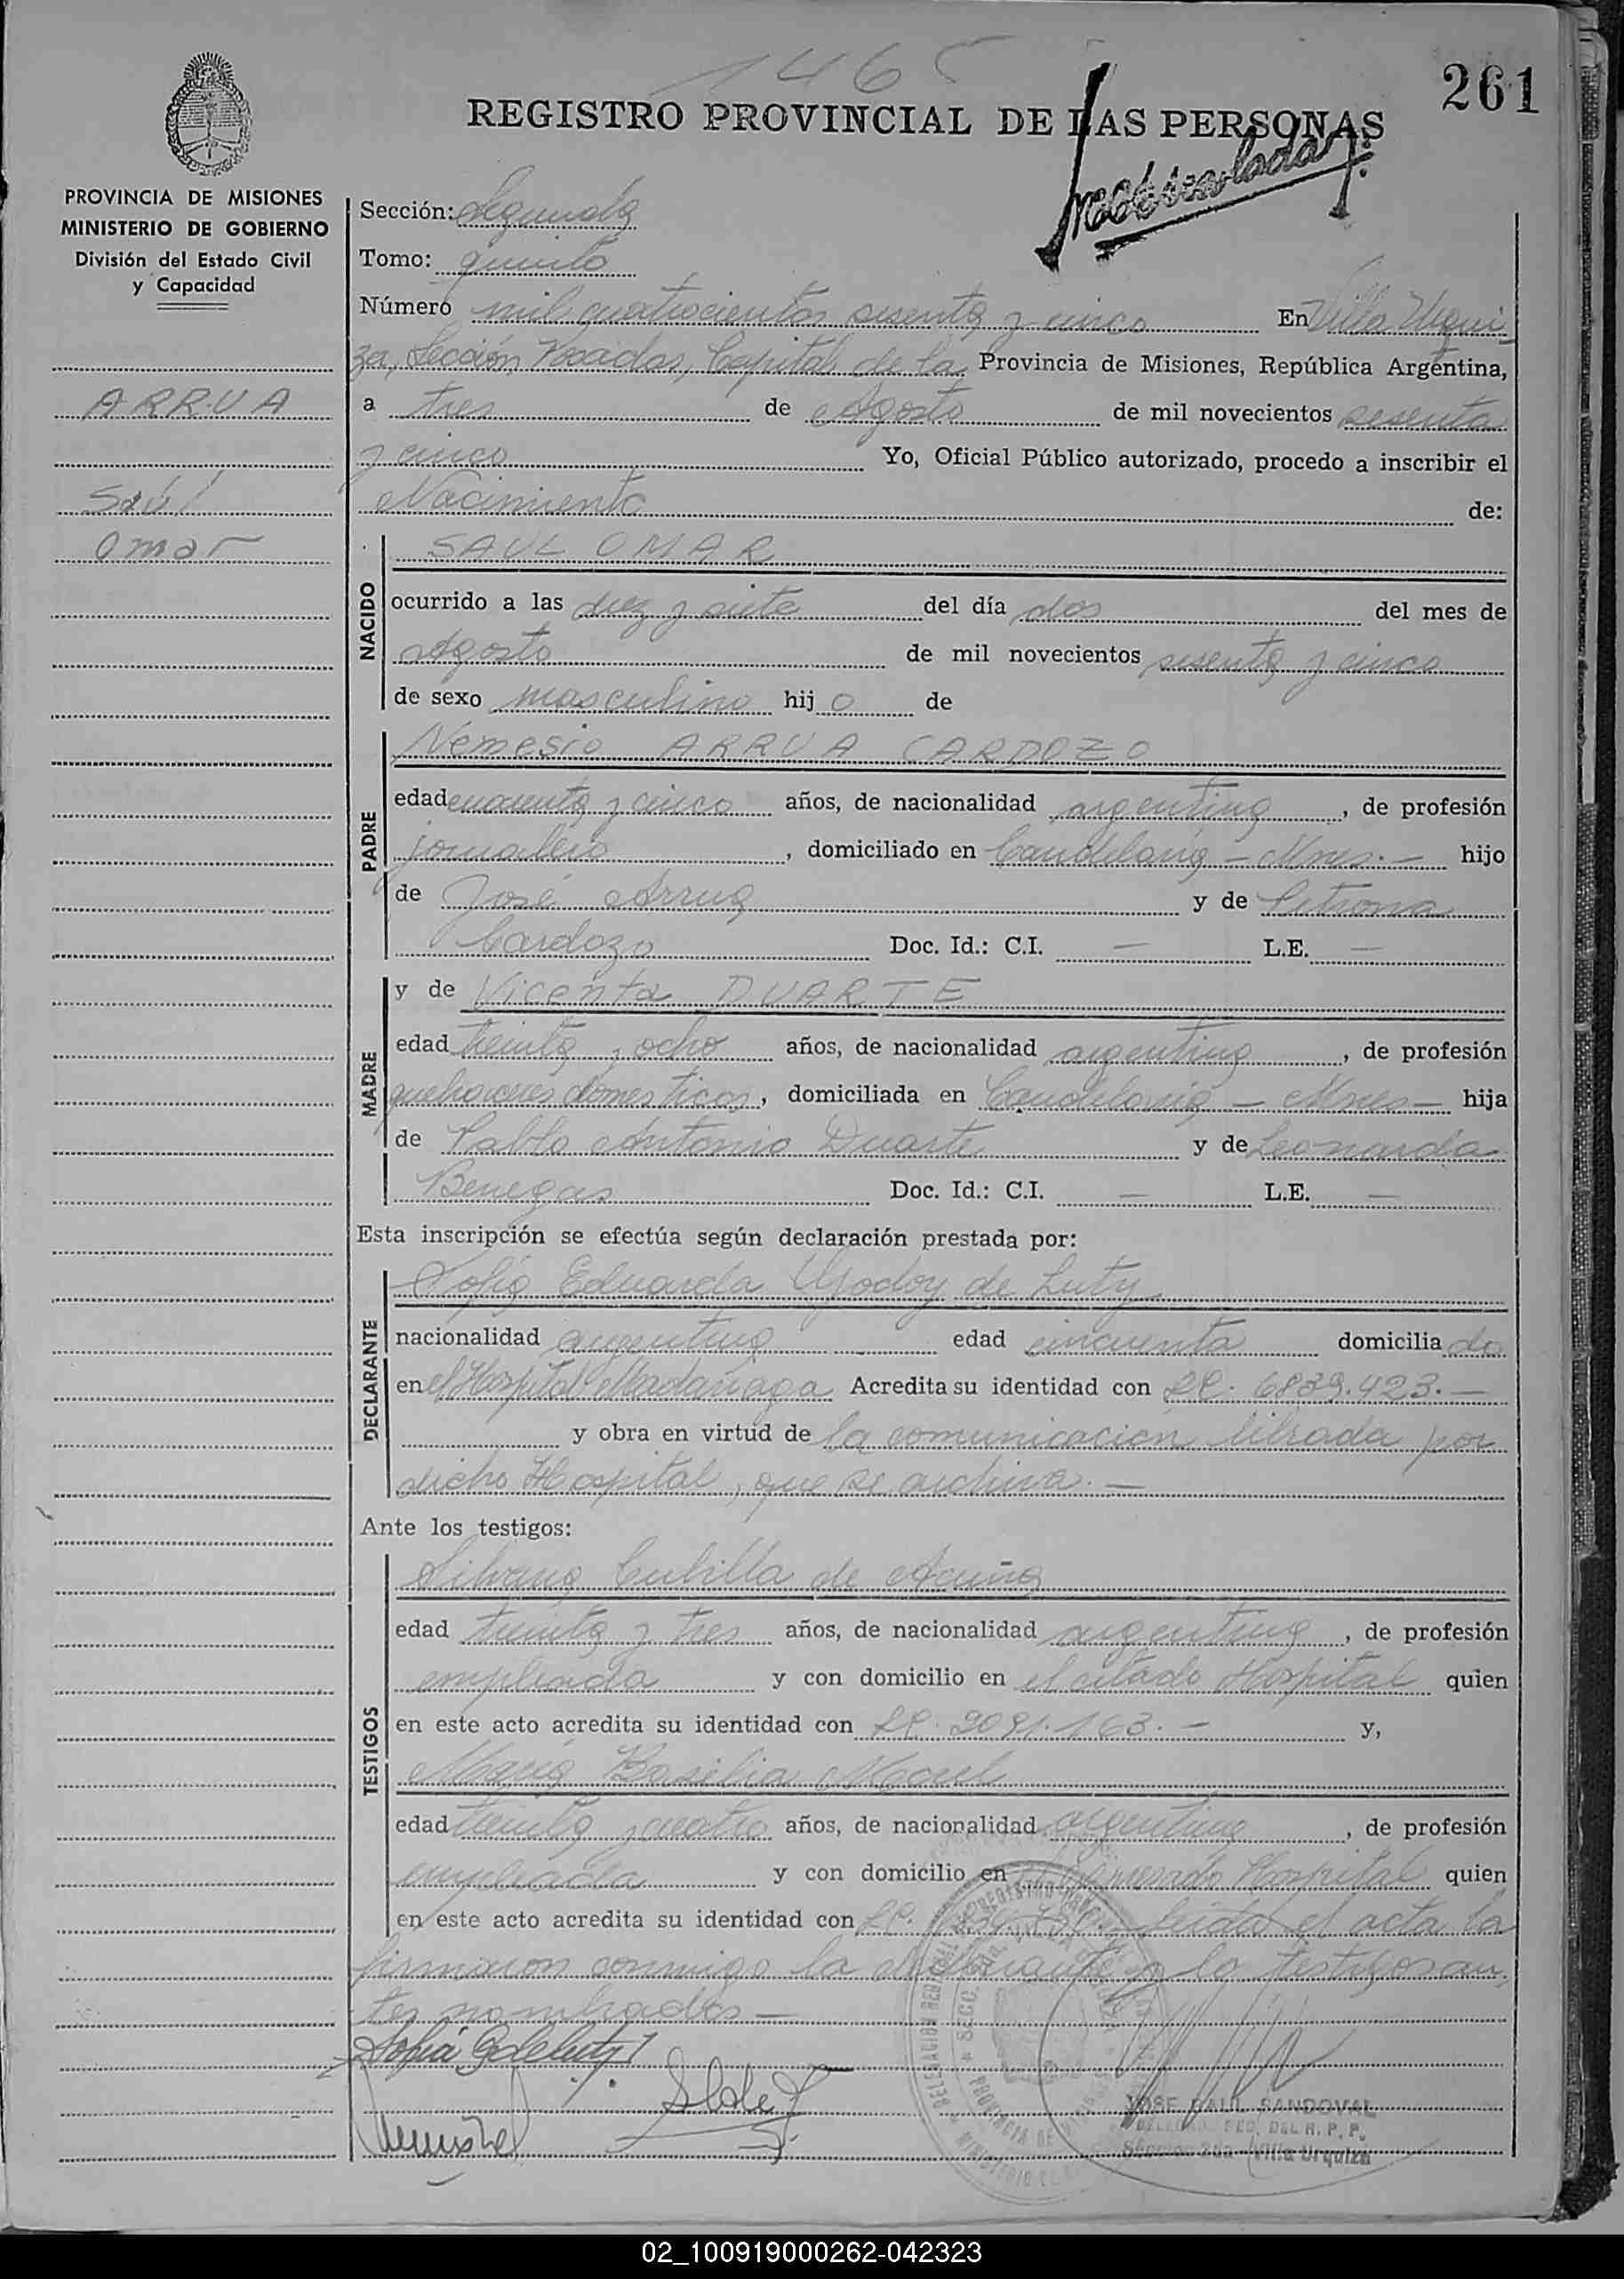 1465
261
REGISTRO PROVINCIAL DE LAS PERSONAS
PROVINCIA DE MISIONES
MINISTERIO DE GOBIERNO
División del Estado Civil
y Capacidad
ARRUA
Saúl
Omar
Sección: Segunda
Tomo: quinto
Número mil cuatrocientos sesenta y cinco En Villa Urqui-
za, Sección Posadas, Capital de la Provincia de Misiones, República Argentina,
a tres de Agosto de mil novecientos sesenta
y cinco Yo, Oficial Público autorizado, procedo a inscribir el
Nacimiento de:
NACIDO
SAUL OMAR
ocurrido a las diez y siete del día dos del mes de
Agosto de mil novecientos sesenta y cinco
de sexo masculino hijo de
PADRE
Nemesio ARRUA CARDOZO
edad cuarenta y cinco años, de nacionalidad argentina, de profesión
jornalero, domiciliado en Candelaria - Mnes. - hijo
de José Arrua y de Petrona
Cardozo Doc. Id.: C.I. — L.E. —
MADRE
y de Vicenta DUARTE
edad treinta y ocho años, de nacionalidad argentina, de profesión
quehaceres domesticos, domiciliada en Candelaria - Mnes - hija
de Pablo Antonio Duarte y de Leonarda
Benegas Doc. Id.: C.I. — L.E. —
Esta inscripción se efectúa según declaración prestada por:
DECLARANTE
Sofia Eduarda Godoy de Luty
nacionalidad argentina edad cincuenta domiciliado
en el Hospital Madariaga Acredita su identidad con LC. 6839.423. —
y obra en virtud de la comunicación librada por
dicho Hospital, que se archiva. —
Ante los testigos:
TESTIGOS
Silvana Cubilla de Acuña
edad treinta y tres años, de nacionalidad argentina, de profesión
empleada y con domicilio en el citado Hospital quien
en este acto acredita su identidad con LC. 2091.163. - y,
María Basilia Morel
edad treinta y cuatro años, de nacionalidad argentina, de profesión
empleada y con domicilio en Hospital quien
en este acto acredita su identidad con LC. Leida el acta la
firmaron conmigo la declarante y lo testigos an-
tes nombrados —
JOSE RAUL SANDOVAL
DEL R. P. P.
Sección 2da Villa Urquiza
02_100919000262-042323